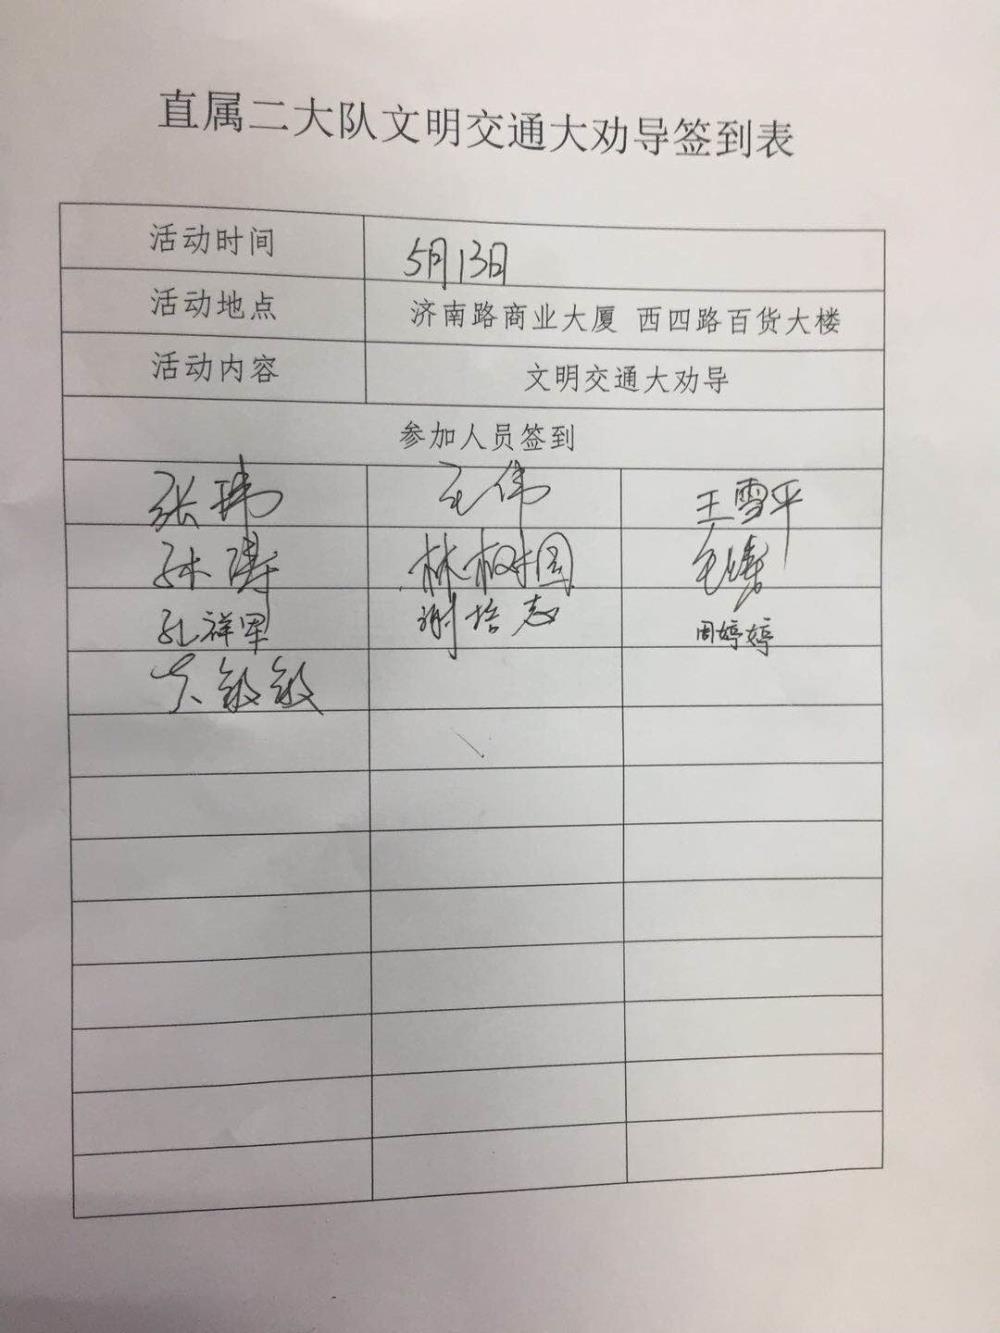 直属二大队文明交通大劝导签到表
活动时间 5月13日
活动地点 济南路商业大厦 西四路百货大楼
活动内容 文明交通大劝导
参加人员签到
张玮 王伟 王雪平
孙涛 林树国 毛涛
孔祥军 谢培志 周婷婷
敏敏